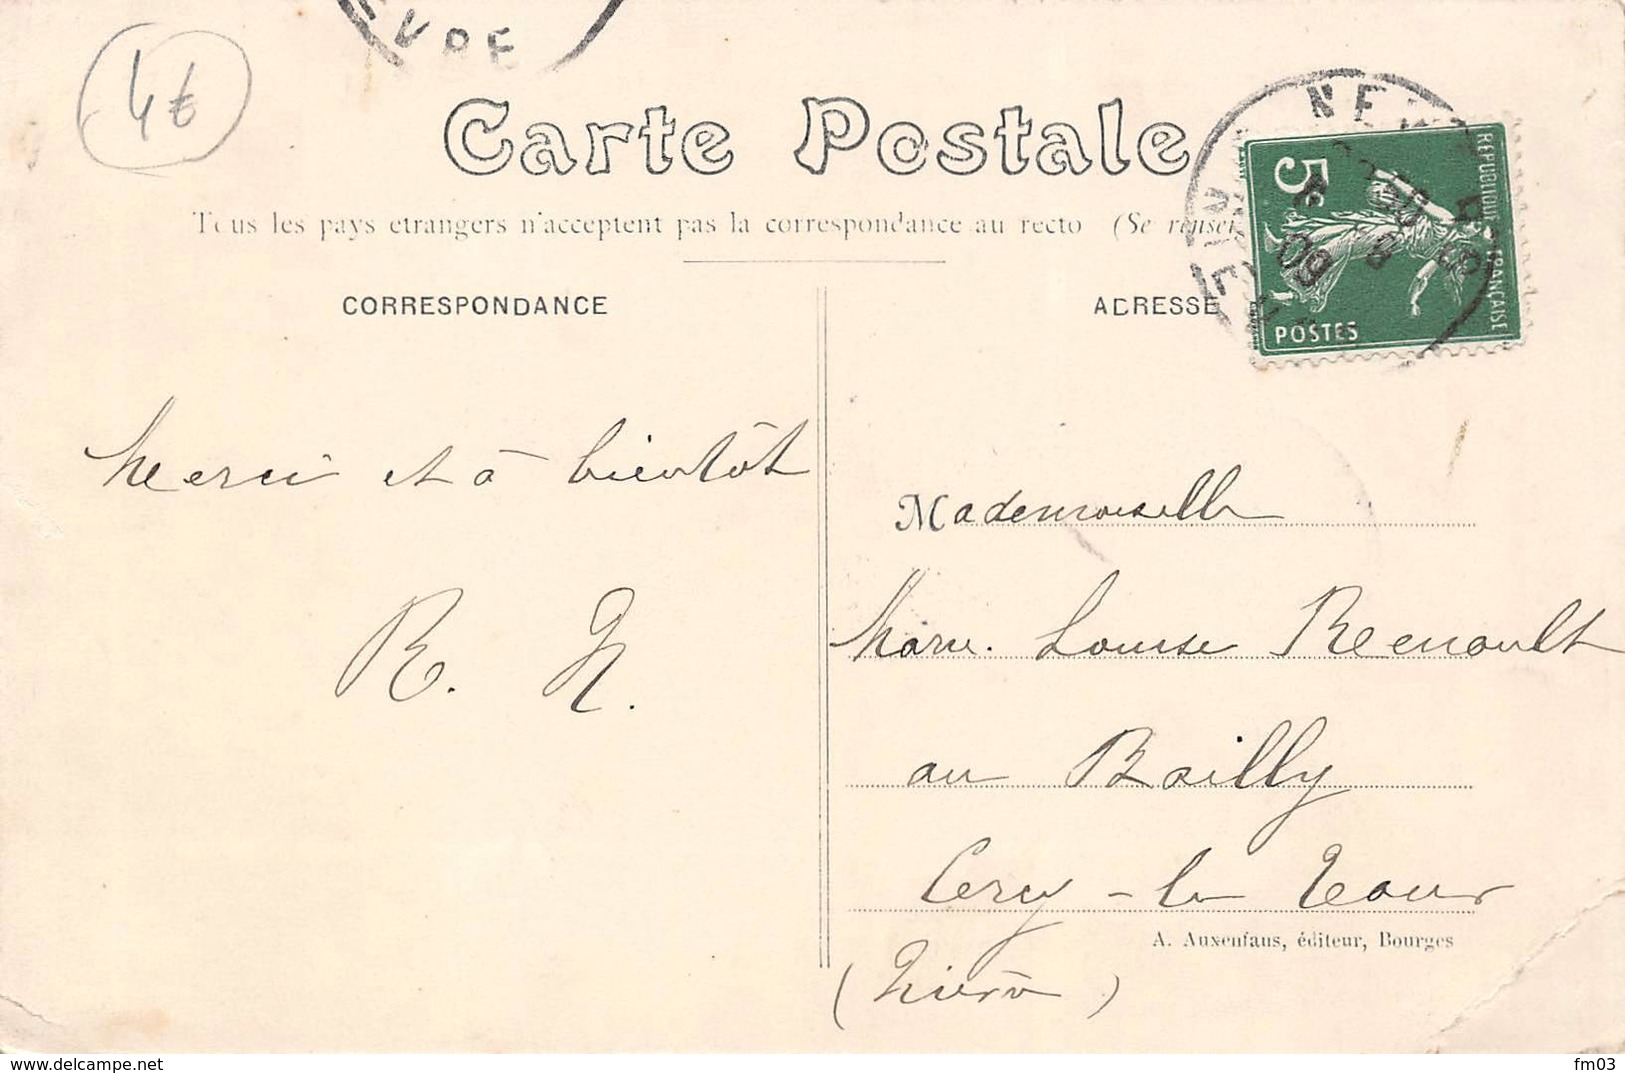 4€
VRE
Carte Postale
Tous les pays etrangers n'acceptent pas la correspondance au recto (Se rensei
CORRESPONDANCE
ADRESSE
NE
5
REPUBLIQUE FRANÇAISE
POSTES
09
Merci et à bientôt
R. N.
Mademoiselle
Marie. Louise Renault
au Bailly
Cercy-la Tour
A. Auxenfans, éditeur, Bourges
(Nièvre)
www.delcampe.net
fm03